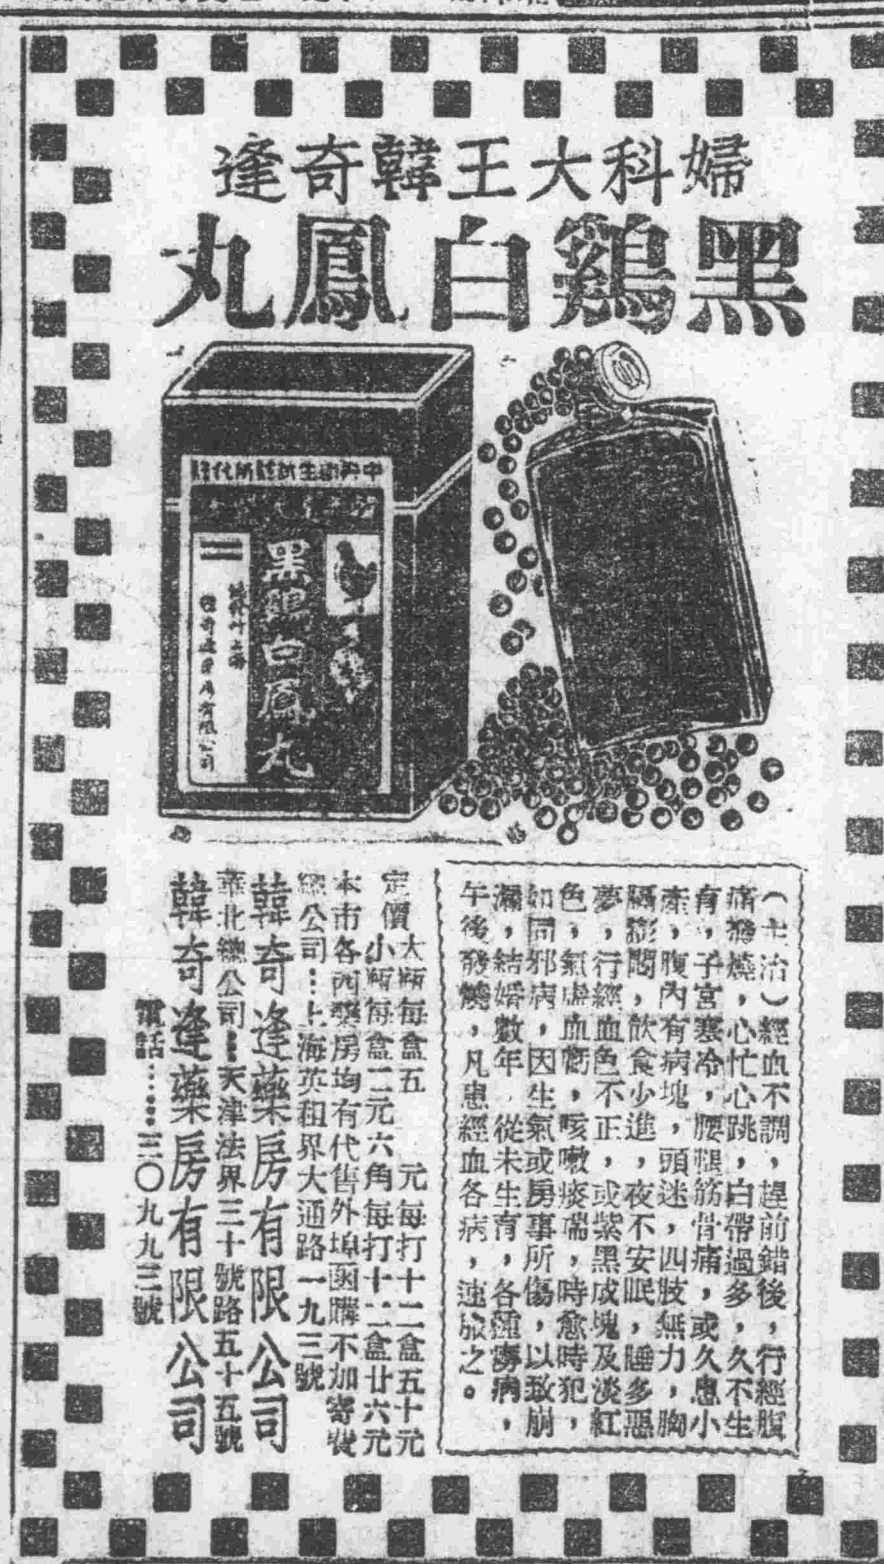 婦科大王韓奇逢
黑鷄白鳳丸
黑鷄白鳳丸
韓奇逢藥房有限公司
（主治）經血不調，趕前錯後，行經腹
痛發燒，心忙心跳，白帶過多，久不生
育，子宮寒冷，腰腿筋骨痛，或久患小
產，腹內有病塊，頭迷，四肢無力，胸
膈膨悶，飲食少進，夜不安眠，睡多惡
夢，行經血色不正，或紫黑成塊及淡紅
色，氣虛血虧，咳嗽痰喘，時愈時犯，
如同邪病，因生氣或房事所傷，以致崩
漏，結婚數年，從未生育，各種癆病，
午後發燒，凡患經血各病，速服之。
定價
大瓶每盒五 元每打十二盒五十元
小瓶每盒二元六角每打十二盒廿六元
本市各西藥房均有代售外埠函購不加寄費
總公司：：上海英租界大通路一九三號
韓奇逢藥房有限公司
華北總公司：：天津法界三十號路五十五號
韓奇逢藥房有限公司
電話……三〇九九三號